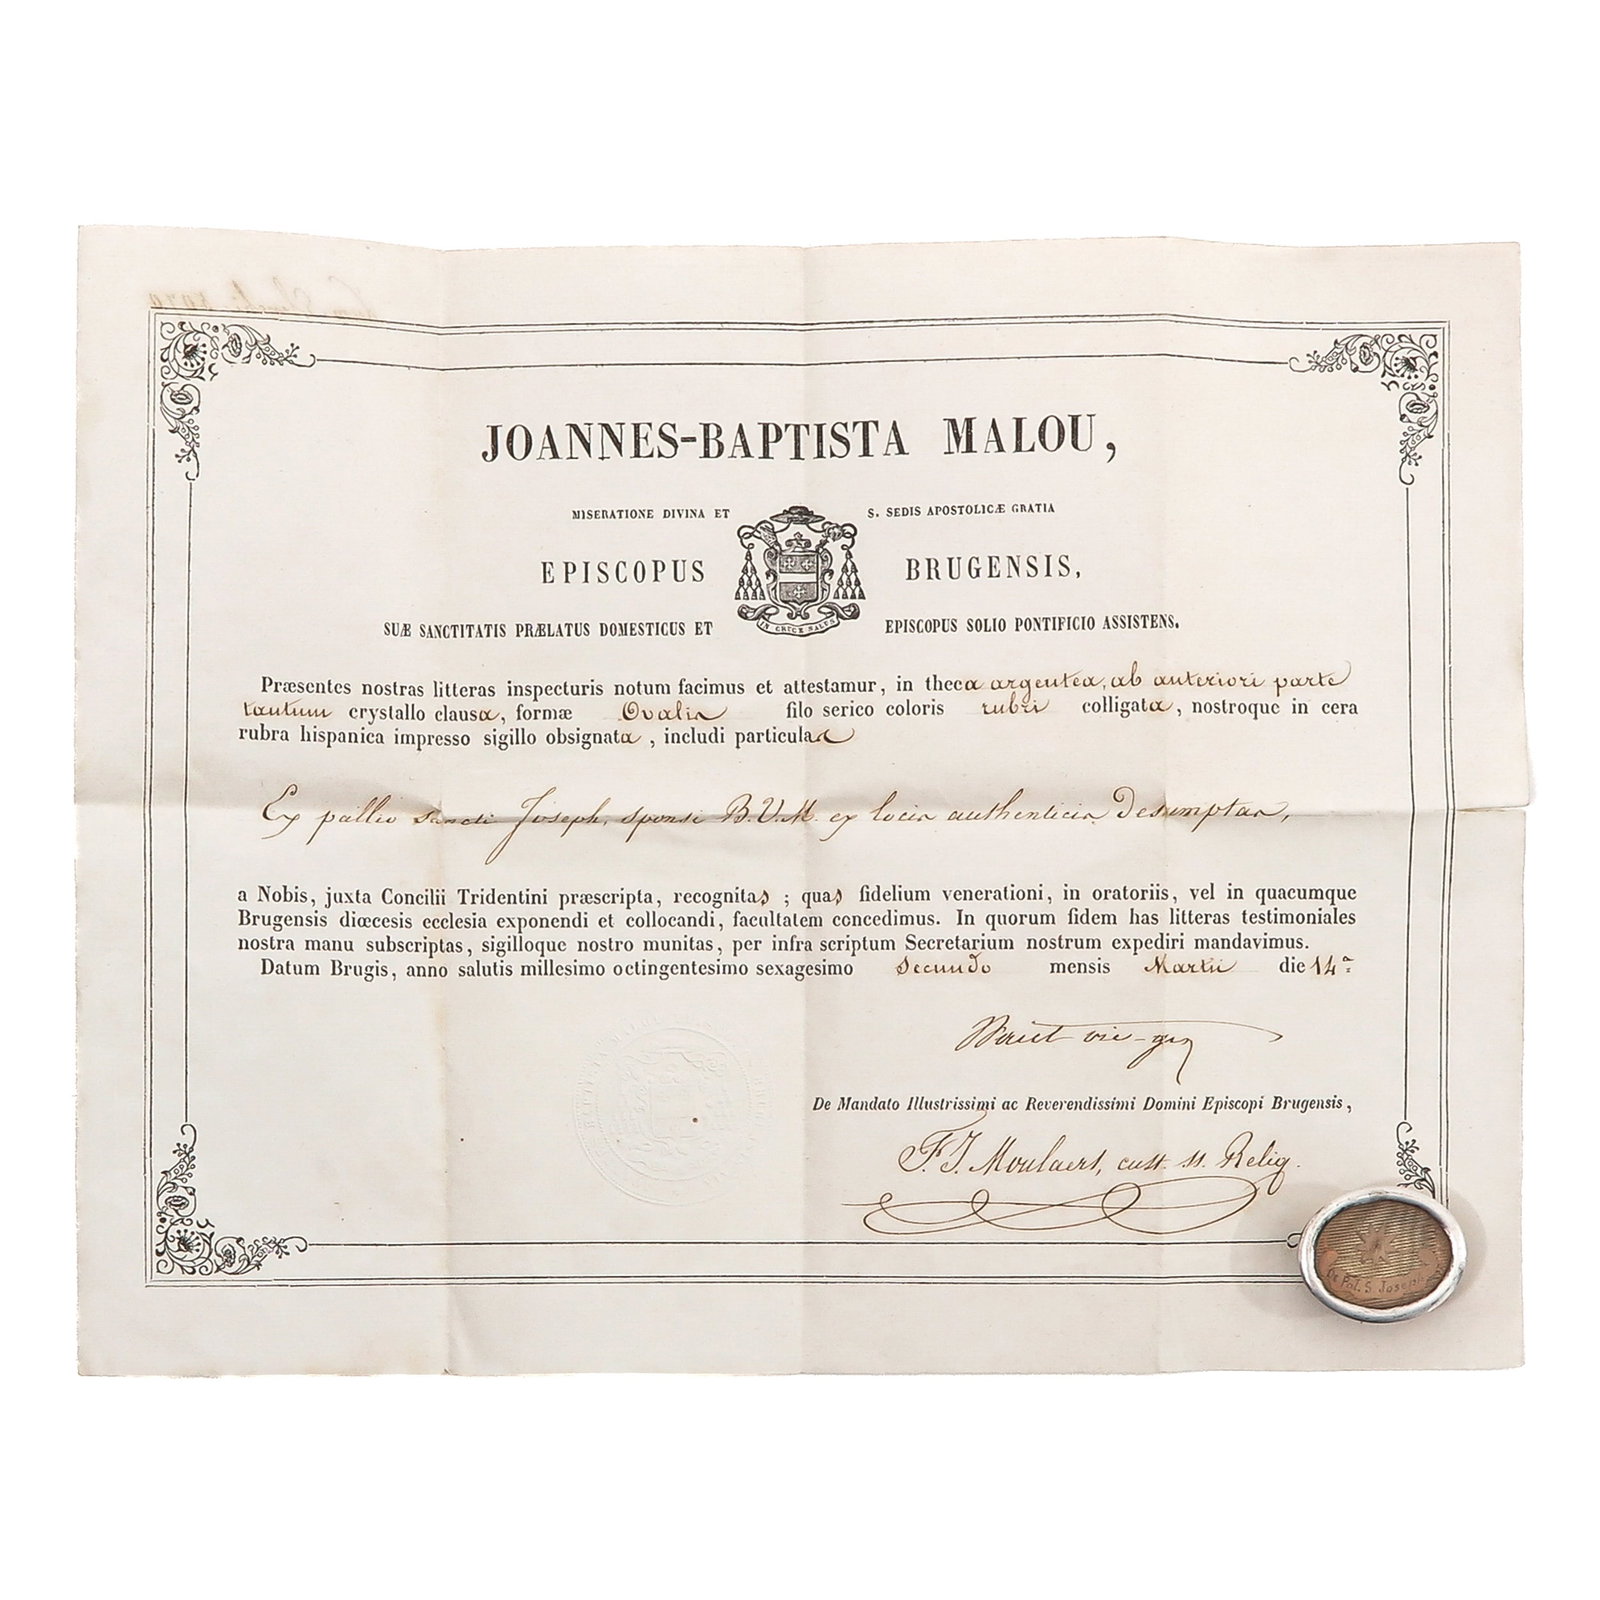 JOANNES-BAPTISTA MALOU,
MISERATIONE DIVINA ET S. SEDIS APOSTOLICÆ GRATIA
EPISCOPUS BRUGENSIS,
SUÆ SANCTITATIS PRÆLATUS DOMESTICUS ET EPISCOPUS SOLIO PONTIFICIO ASSISTENS.
IN CRUCE SALUS
Præsentes nostras litteras inspecturis notum facimus et attestamur, in theca argentea, ab anteriori parte
tantum crystallo clausa, formæ Ovalis filo serico coloris rubri colligata, nostroque in cera
rubra hispanica impresso sigillo obsignata, includi particulas
Ex pallio Sancti Joseph, sponsi B.V.M. ex locis authenticis Desumptas,
a Nobis, juxta Concilii Tridentini præscripta, recognitas; quas fidelium venerationi, in oratoriis, vel in quacumque
Brugensis diœcesis ecclesia exponendi et collocandi, facultatem concedimus. In quorum fidem has litteras testimoniales
nostra manu subscriptas, sigilloque nostro munitas, per infra scriptum Secretarium nostrum expediri mandavimus.
Datum Brugis, anno salutis millesimo octingentesimo sexagesimo Secundo mensis Martii die 14ª
vic-gen
De Mandato Illustrissimi ac Reverendissimi Domini Episcopi Brugensis,
F.J. Moulaert, cust. ss. Reliq.
Pal. S. Joseph